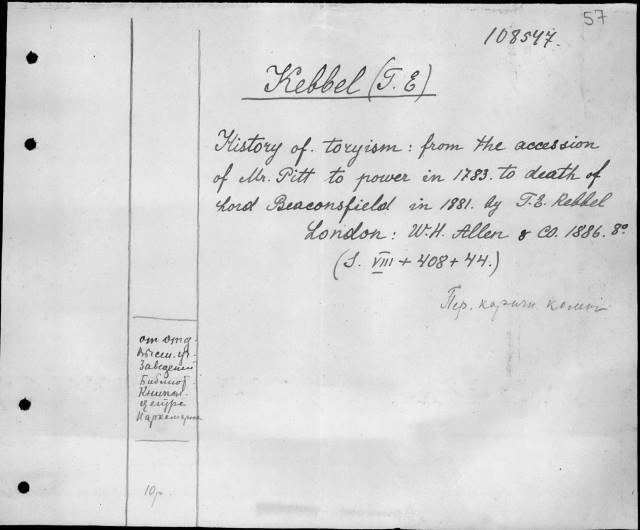 57
108547.
Kebbel (T. E)
History of. toryism: from the accession
of Mr. Pitt to power in 1783. to death of
Lord Beaconsfield in 1881. by T.E. Kebbel
London: W.H. Allen & CO. 1886. 8º
(S. VIII + 408 + 44.)
Пер.
от отд.
Высш. уч.
Заведений
Библиот.
Книжн.
центра
Наркомпроса
10р